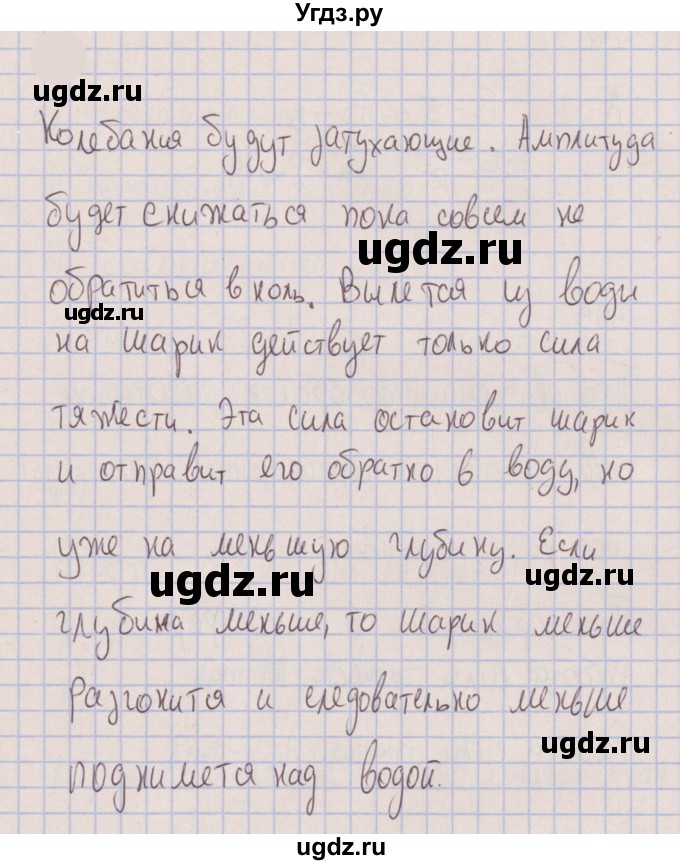 Угдз.ру
ugdz.ru
Колебания будут затухающие. Амплитуда
будет снижаться пока совсем не
ugdz.ru
обратиться в ноль. Вылетая из воды
ugdz.ru
на шарик действует только сила
тяжести. Эта сила остановит шарик
и отправит его обратно в воду, но
уже на меньшую глубину. Если
ugdz.ru
ugdz.ru
глубина меньше, то шарик меньше
разгонится и следовательно меньше
ugdz.ru
поднимется над водой.
ugdz.ru